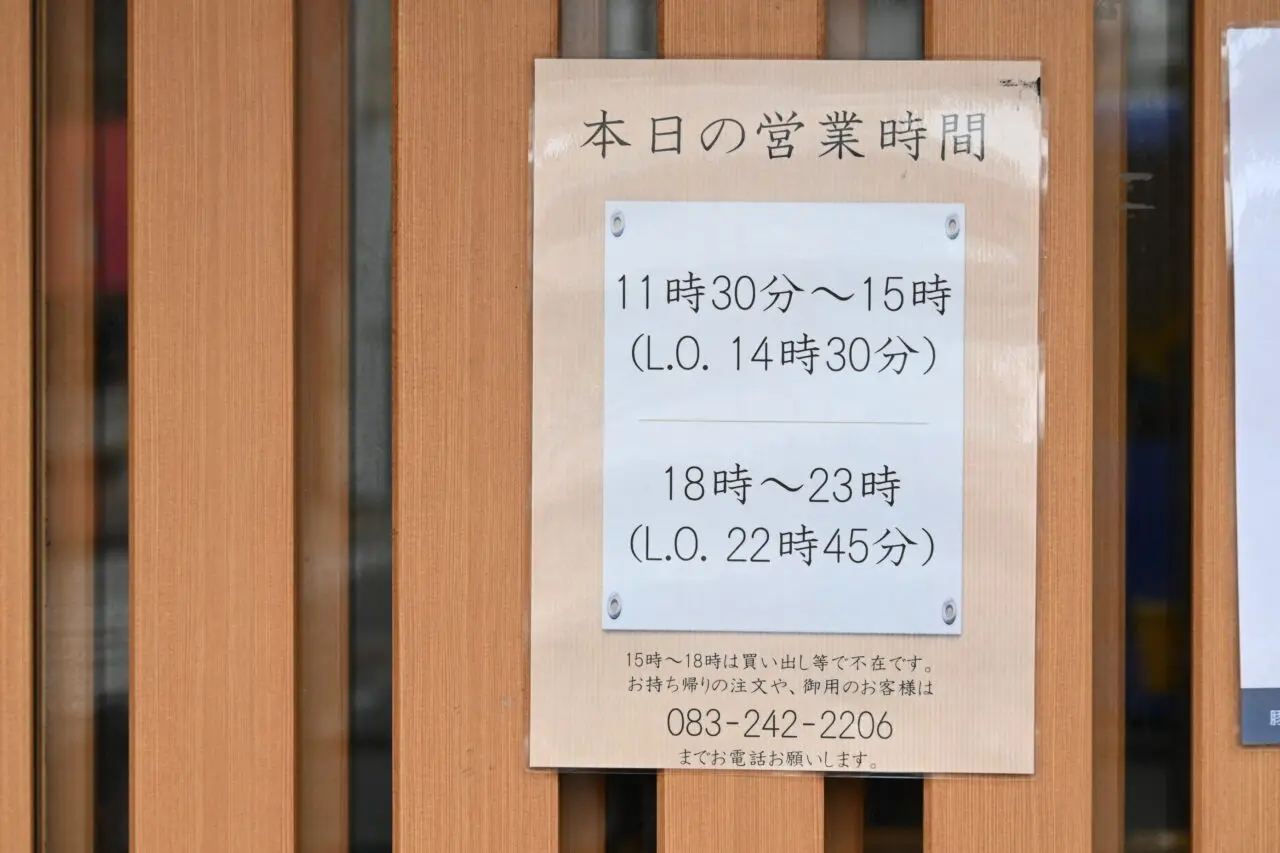 本日の営業時間
11時30分～15時
(L.O. 14時30分)
18時～23時
(L.O. 22時45分)
15時～18時は買い出し等で不在です。
お持ち帰りの注文や、御用のお客様は
083-242-2206
までお電話お願いします。